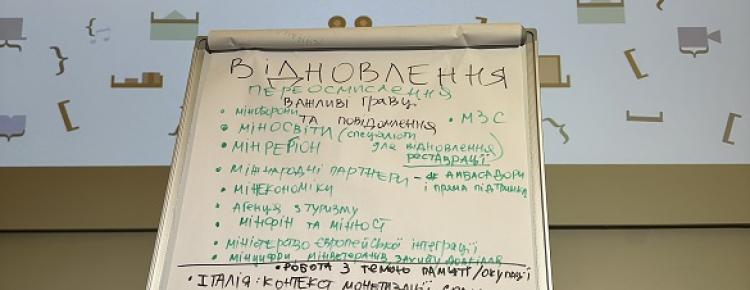 ВІДНОВЛЕННЯ
ПЕРЕОСМИСЛЕННЯ
ВАЖЛИВІ ГРАВЦІ
ТА ПОВІДОМЛЕННЯ
• МІНОБОРОНИ • МЗС
• МІНОСВІТИ (СПЕЦІАЛІСТИ ДЛЯ ВІДНОВЛЕННЯ)
• МІНРЕГІОН РЕСТАВРАЦІЇ
• МІЖНАРОДНІ ПАРТНЕРИ - АМБАСАДОРИ
• МІНЕКОНОМІКИ І ПРЯМА ПІДТРИМКА
• АГЕНЦІЯ З ТУРИЗМУ
• МІНФІН ТА МІНЮСТ
• МІНІСТЕРСТВО ЄВРОПЕЙСЬКОЇ ІНТЕГРАЦІЇ
• МІНЦИФРИ, МІНВЕТЕРАНІВ, ЗАХИСТУ ДОВКІЛЛЯ
• РОБОТА З ТЕМОЮ ПАМ'ЯТІ/ОКУПАЦІЇ
• ІТАЛІЯ: КОНТЕКСТ МОНЕТИЗАЦІЇ